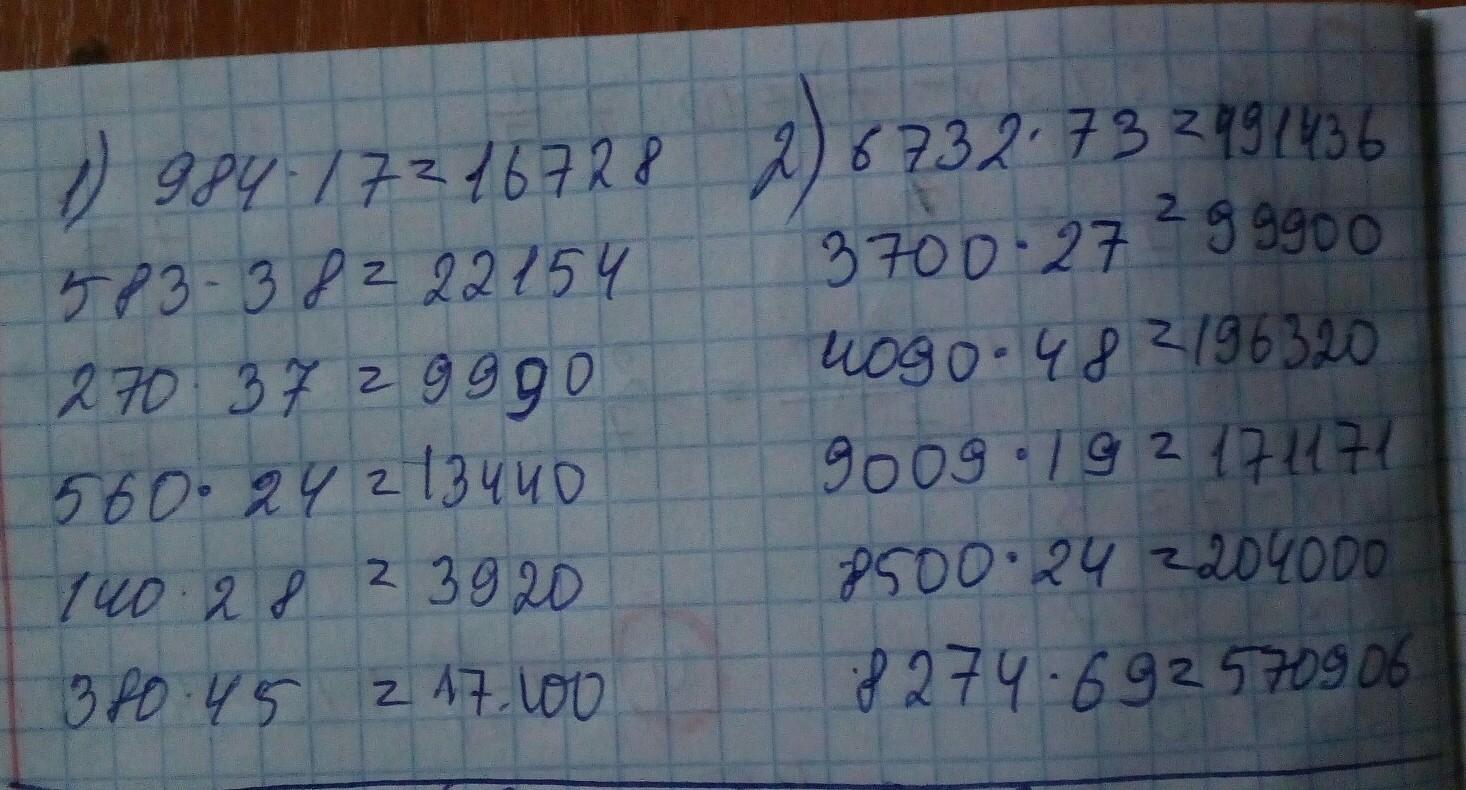 1) 984·17=16728
583·38=22154
270·37=9990
560·24=13440
140·28=3920
380·45=17.100
2) 6732·73=491436
3700·27=99900
4090·48=196320
9009·19=171171
8500·24=204000
8274·69=570906